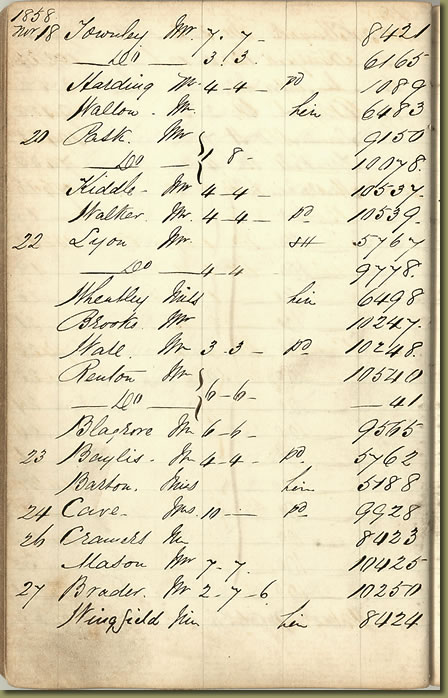 1858
Nov 18 Townley Mr 7. 7- 8421
Do 3. 3. 6165
Harding Mr 4-4- pd 1089
Walton. Mr 6483
20 Pask. Mr 9150
Do 1 8- 10078.
Kiddle- Mr 4-4- 10537.
Walker. Mr 4-4- pd 10539.
22 Lyon Mr. 5767
Do 4-4 9778.
Wheatley Miss 6498
Brooks. Mr 10247.
Wall. Mr 3-3- pd. 10248.
Renton Mr 10540
Do 6-6- 41
Blagrove Mr 6-6- 9565
23 Baylis. Mr 4-4- pd. 5762
Barton. Miss 5188
24 Cave- Mrs. 10- pd 9928
26 Cramers 8423
Mason Mr 7-7. 10425
27 Brader. Mr 2-7-6. 10250
Wingfield 8424